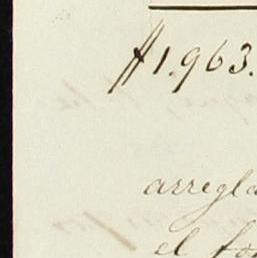 #1.963.
arregla
el fo